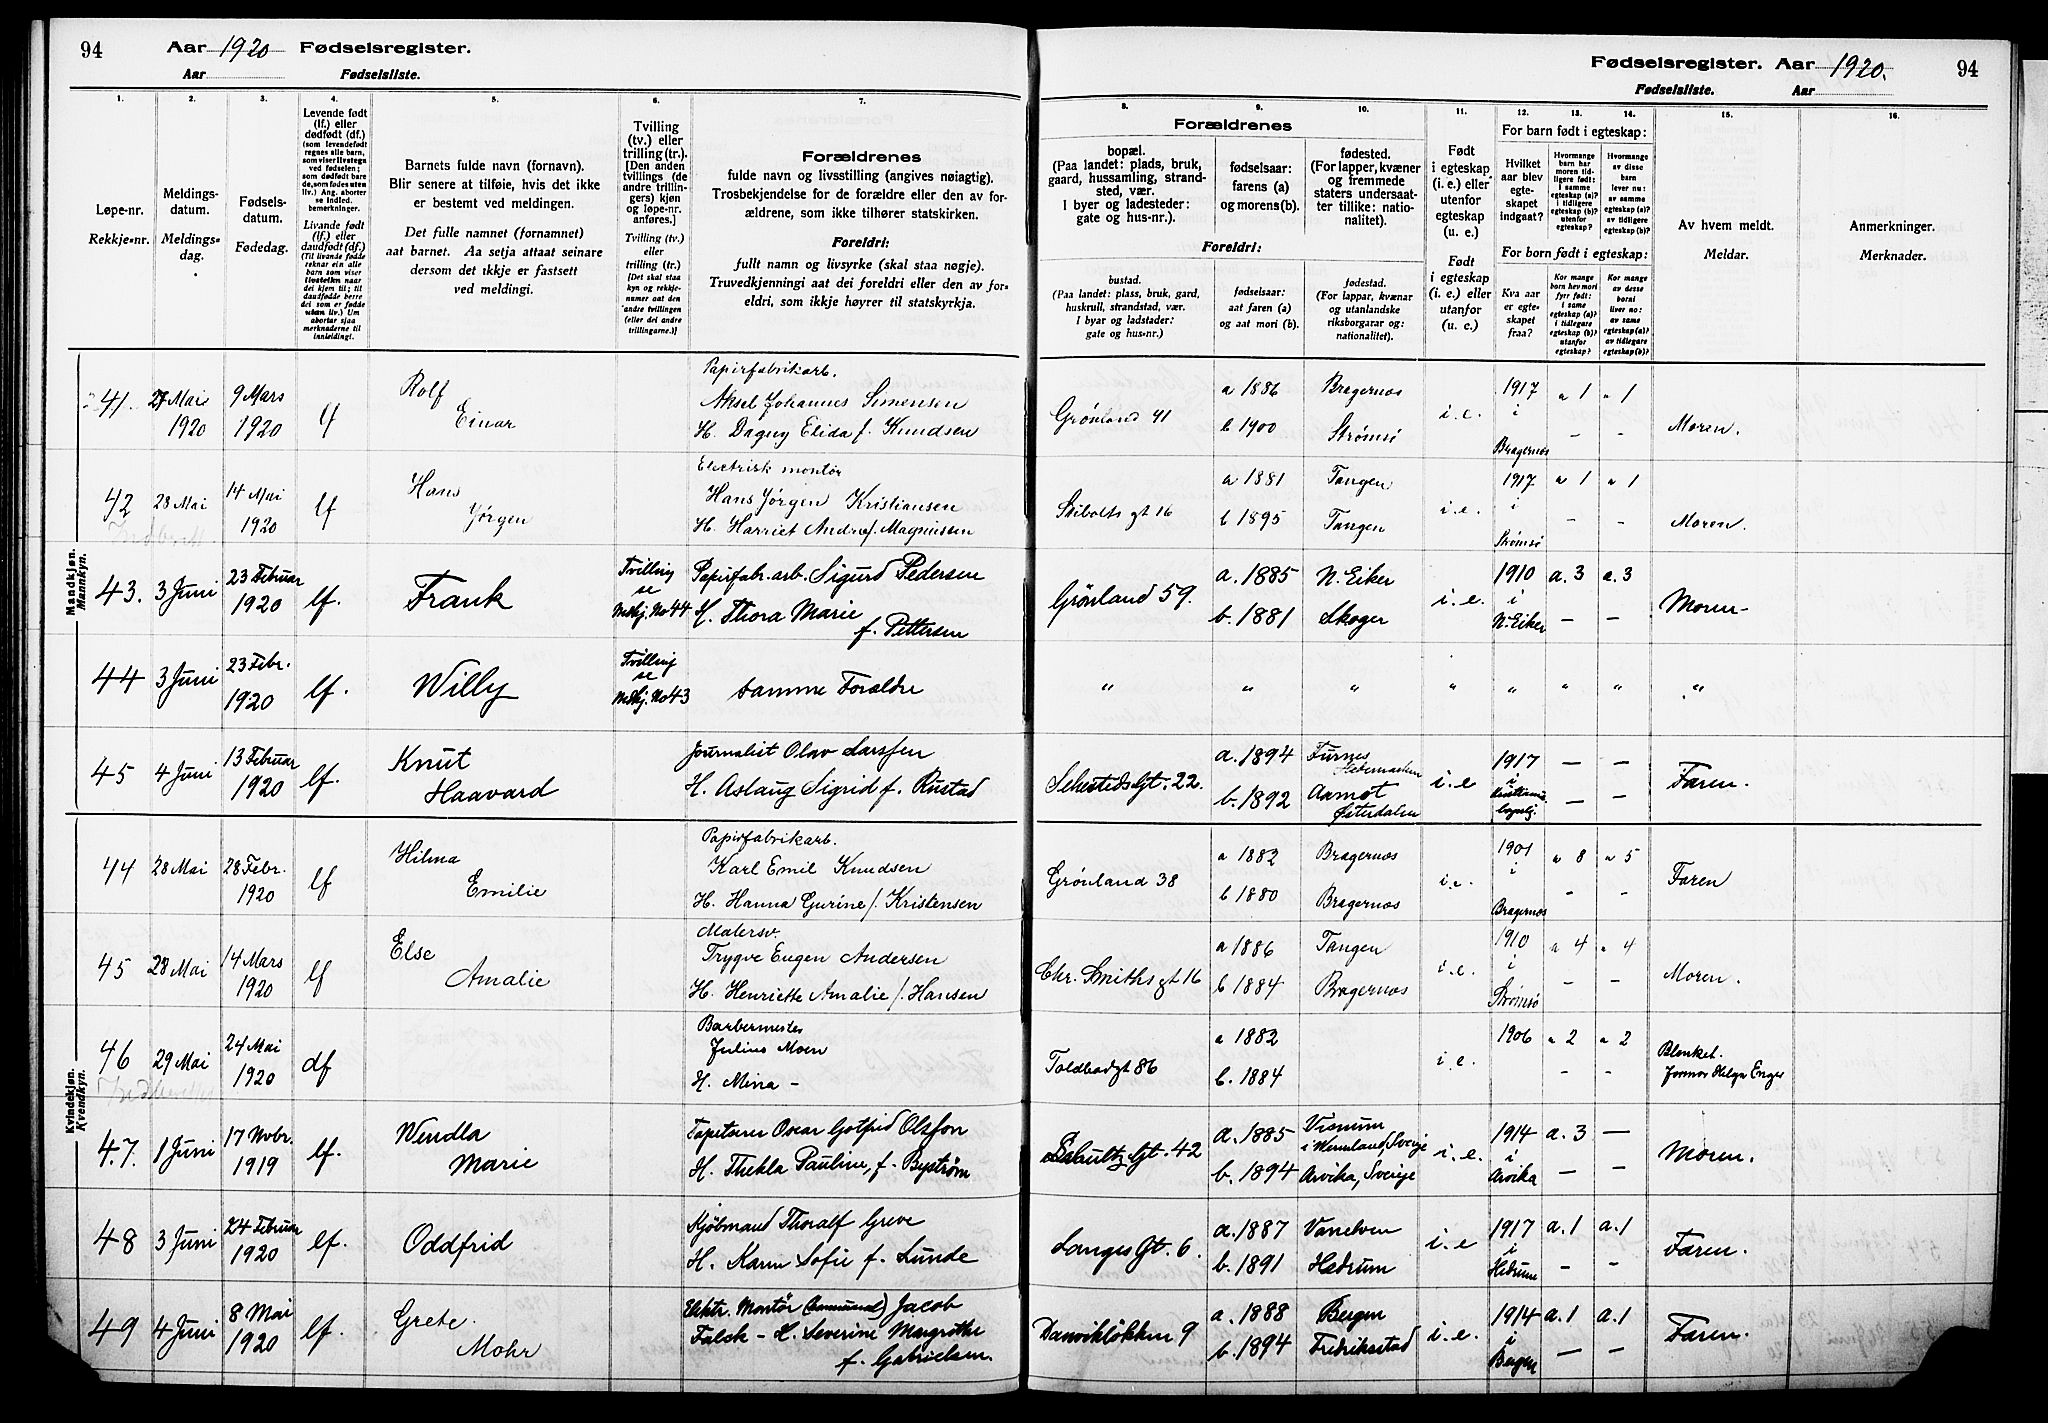 94 Aar 1920 Fødselsregister.
Aar Fødselsliste.
Fødselsregister. Aar 1920. 94
Fødselsliste. Aar
1. 2. 3. 4. 5. 6. 7. 8. 9. 10. 11. 12. 13. 14. 15. 16.
Løpe-nr.
Rekkje-nr.
Meldings-
datum.
Meldings-
dag.
Fødsels-
datum.
Fødedag.
Levende født
(lf.) eller
dødfødt (df.)
(som levendefødt
regnes alle barn,
som viser livstegn
ved fødselen;
som dødfødt bare
de, som fødes uten
liv.) Ang. aborter
se indled.
bemerkninger.
Livande født
(lf.) eller
daudfødt (df.)
(Til livande fødde
reknar ein alle
barn som viser
livsteikn naar
dei kjem til; til
daudfødde berre
dei som er fødde
utan liv.) Um
abortar sjaa
merknaderne til
innleidingi.
Barnets fulde navn (fornavn).
Blir senere at tilføie, hvis det ikke
er bestemt ved meldingen.
Det fulle namnet (fornamnet)
aat barnet. Aa setja attaat seinare
dersom det ikkje er fastsett
ved meldingi.
Tvilling
(tv.) eller
trilling (tr.).
[Den anden
tvillings (de
andre trillin-
gers) kjøn
og løpe-nr.
anføres.]
Tvilling (tv.)
eller
trilling (tr.)
[Det skal staa
kyn og rekkje-
numer aat den
andre tvillingen
(eller dei andre
trillingarne.)]
Forældrenes
fulde navn og livsstilling (angives nøiagtig).
Trosbekjendelse for de forældre eller den av for-
ældrene, som ikke tilhører statskirken.
Foreldri:
fullt namn og livsyrke (skal staa nøgje).
Truvedkjenningi aat dei foreldri eller den av for-
eldri, som ikkje høyrer til statskyrkja.
Forældrenes
bopæl.
(Paa landet: plads, bruk,
gaard, hussamling, strand-
sted, vær.
I byer og ladesteder:
gate og hus-nr.).
fødselsaar:
farens (a)
og morens(b).
fødested.
(For lapper, kvæner
og fremmede
staters undersaat-
ter tillike: natio-
nalitet).
Foreldri:
bustad.
(Paa landet: plass, bruk, gard,
huskrull, strandstad, vær.
I byar og ladstader:
gate og hus-nr.)
fødselsaar:
aat faren (a)
og aat mori (b).
fødestad.
(For lappar, kvænar
og utanlandske
riksborgarar og:
nationalitet).
Født
i egteskap
(i. e.) eller
utenfor
egteskap
(u. e.)
Født
i egteskap
(i. e.) eller
utanfor
(u. e.)
For barn født i egteskap:
Hvilket
aar blev
egte-
skapet
indgaat?
Hvormange
barn har
moren tid-
ligere født:
I samme
egteskap (a)?
I tidligere
egteskap (b)?
utenfor
egteskap?
Hvormange
av disse
barn
lever nu:
av samme
egteskap (a)?
av tidligere
egteskap (b)?
For born født i egteskap:
Kva aar
er egte-
skapet
fraa?
Kor mange
born hev mori
fyrr født:
i same
egteskap (a)?
i tidlegare
egteskap (b)?
utanfor
egteskap?
Kor mange
av desse
borni
liver no:
av same
egteskap (a)?
av tidlegare
egteskap (b)?
Av hvem meldt.
Meldar.
Anmerkninger.
Merknader.
Mandkjøn.
Mannkyn.
41. 27 Mai 1920 9 Mars 1920 lf Rolf Einar Papirfabrikarb. Aksel Johannes Simensen H. Dagny Elida f. Knudsen Grønland 41 a 1886 b 1900 Bragernæs Strømsø i.e. 1917 i Bragernæs a 1 a 1 – – Moren.
42 28 Mai 14 Mai 1920 lf Hans Jørgen Electrisk montør Hans Jørgen Kristiansen H. Harriet Andrea f. Magnussen Skibolts gt 16 a 1881 b 1895 Tangen Tangen i.e. 1917 i Strømsø a 1 a 1 – – Moren.
43. 3 Juni 23 Februar 1920 lf. Frank Tvilling se Mdkj. No 44 Papirfabr. arb. Sigurd Pedersen H. Thora Marie f. Pettersen Grønland 59. a. 1885 b. 1881 N. Eiker Skoger i.e. 1910 i N. Eiker a. 3 a. 3 – – Moren
44 3 Juni 23 Febr. 1920 lf. Willy Tvilling se Mdkj. No 43 samme Forældre " " " " " " " "
45 4 Juni 13 Februar 1920 lf. Knut Haavard Journalist Olav Larssen H. Aslaug Sigrid f. Rustad Sehesteds Gt. 22. a. 1894 b. 1892 Furnes Hedemarken Aamot Østerdalen i.e 1917 i – – – – Faren.
Kvindekjøn.
Kvendkyn.
44 28 Mai 28 Febr. 1920 lf Hilma Emilie Papirfabrikarb. Karl Emil Knudsen H. Hanna Gurine f. Kristensen Grønland 38 a 1882 b 1880 Bragernæs Bragernæs i.e. 1901 i Bragernæs a 8 a 5 – – Faren
45 28 Mai 14 Mars 1920 lf Else Amalie Malersv. Trygve Eugen Andersen H. Henriette Amalie f. Hansen Chr. Smiths gt 16 a 1886 b 1884 Tangen Bragernæs i.e. 1910 i Strømsø a 4 a 4 – – Moren.
46 29 Mai 24 Mai 1920 df Barbermester Julius Moen H. Mina – Toldbodgt 86 a 1882 b. 1884 i.e. 1906 a 2 a 2 – – Blanket. Jormor Helga Enger
47. 1 Juni 17 Novbr. 1919 lf. Wendla Marie Tapetserer Oscar Gotfrid Olsson H. Thekla Pauline, f. Byström Schultz Gt. 42 a. 1885 b. 1894 Visnum i Wermland, Sverige Arvika, Sverige i.e. 1914 i Arvika a. 3 – – – Moren.
48 3 Juni 24 Februar 1920 lf. Oddfrid Kjøbmand Thoralf Greve H. Karen Sofie f. Lunde Langes Gt. 6. a. 1887 b. 1891 Vanelven Hedrum i.e 1917 i Hedrum a. 1 a. 1 – – Faren.
49 4 Juni 8 Mai 1920 lf. Grete Mohr Elektr. Montør (kommunal) Jacob Falck – H. Severine Margrethe f. Gabrielsen. Danvikløkken 9 a. 1888 b. 1894 Bergen Fredriksstad i.e. 1914 i Bergen a. 1 a. 1 – – Faren.